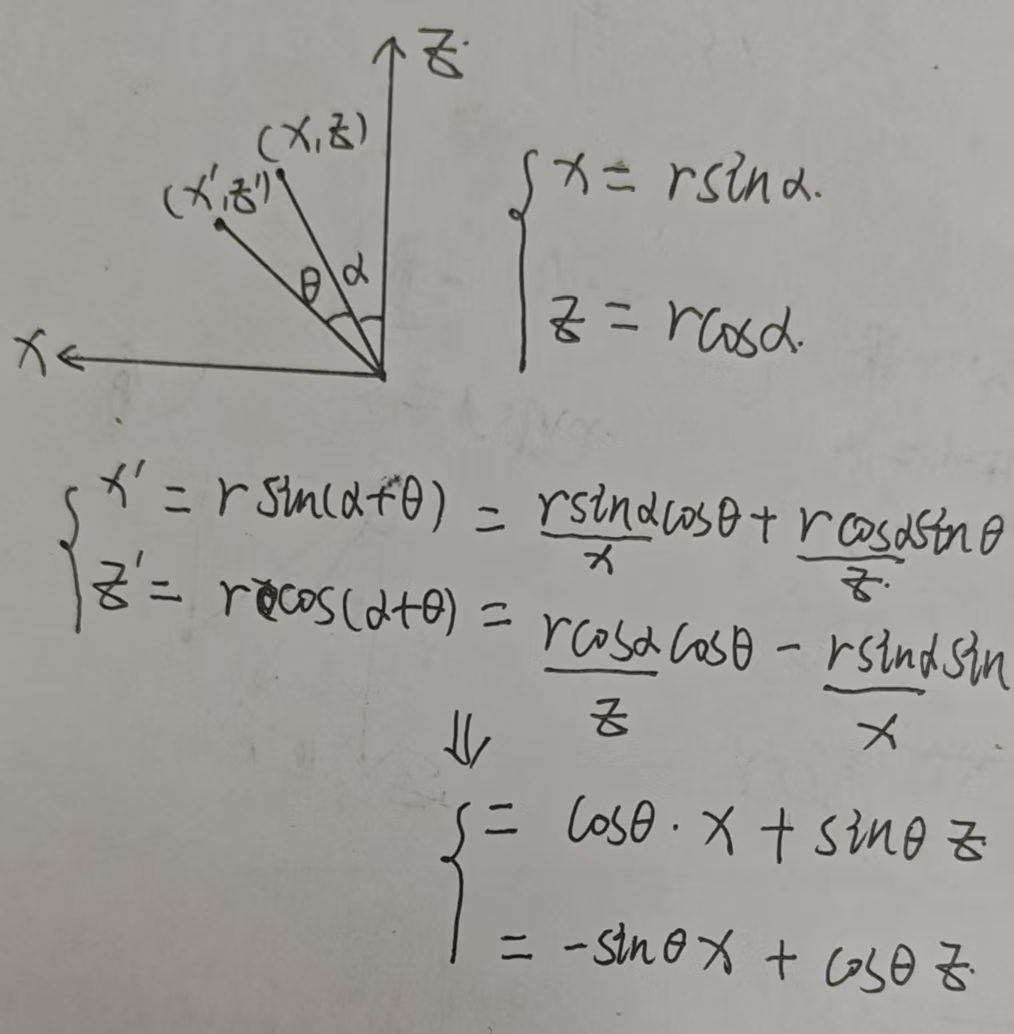 Z
(x,z)
(x',z')
θ α
X
{ x = r sinα.
z = r cosα.
{ x' = r sin(α+θ) = r sinα cosθ + r cosα sinθ
x z.
z' = r cos(α+θ) = r cosα cosθ - r sinα sin
z x
⇓
{ = cosθ · x + sinθ z
= -sinθ x + cosθ z.